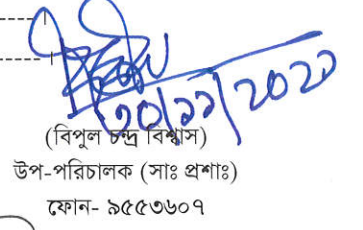 ৩০/১১/২০২১
(বিপুল চন্দ্র বিশ্বাস)
উপ-পরিচালক (সাঃ প্রশাঃ)
ফোন- ৯৫৫৩৬০৭